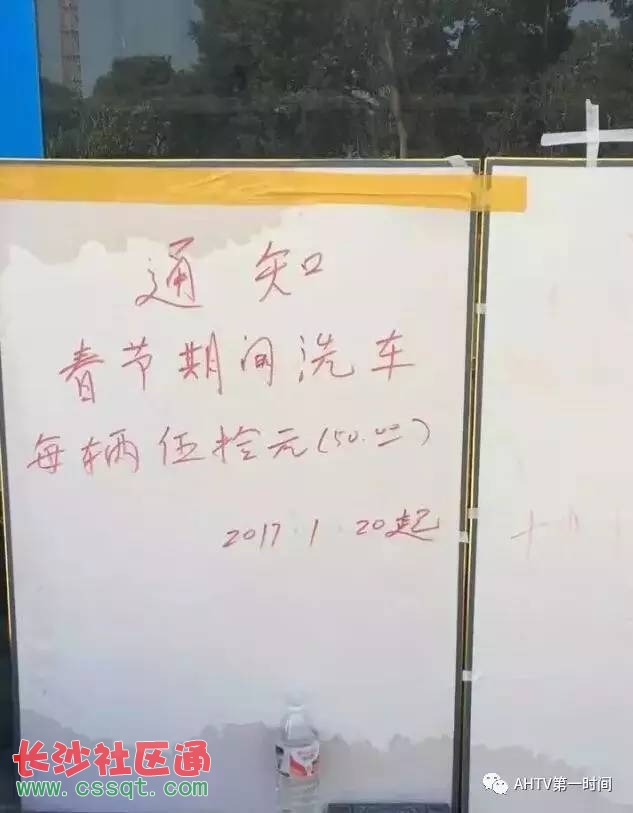 通知
春节期间洗车
每辆伍拾元(50.00)
2017.1.20起
长沙社区通
www.cssqt.com
AHTV第一时间